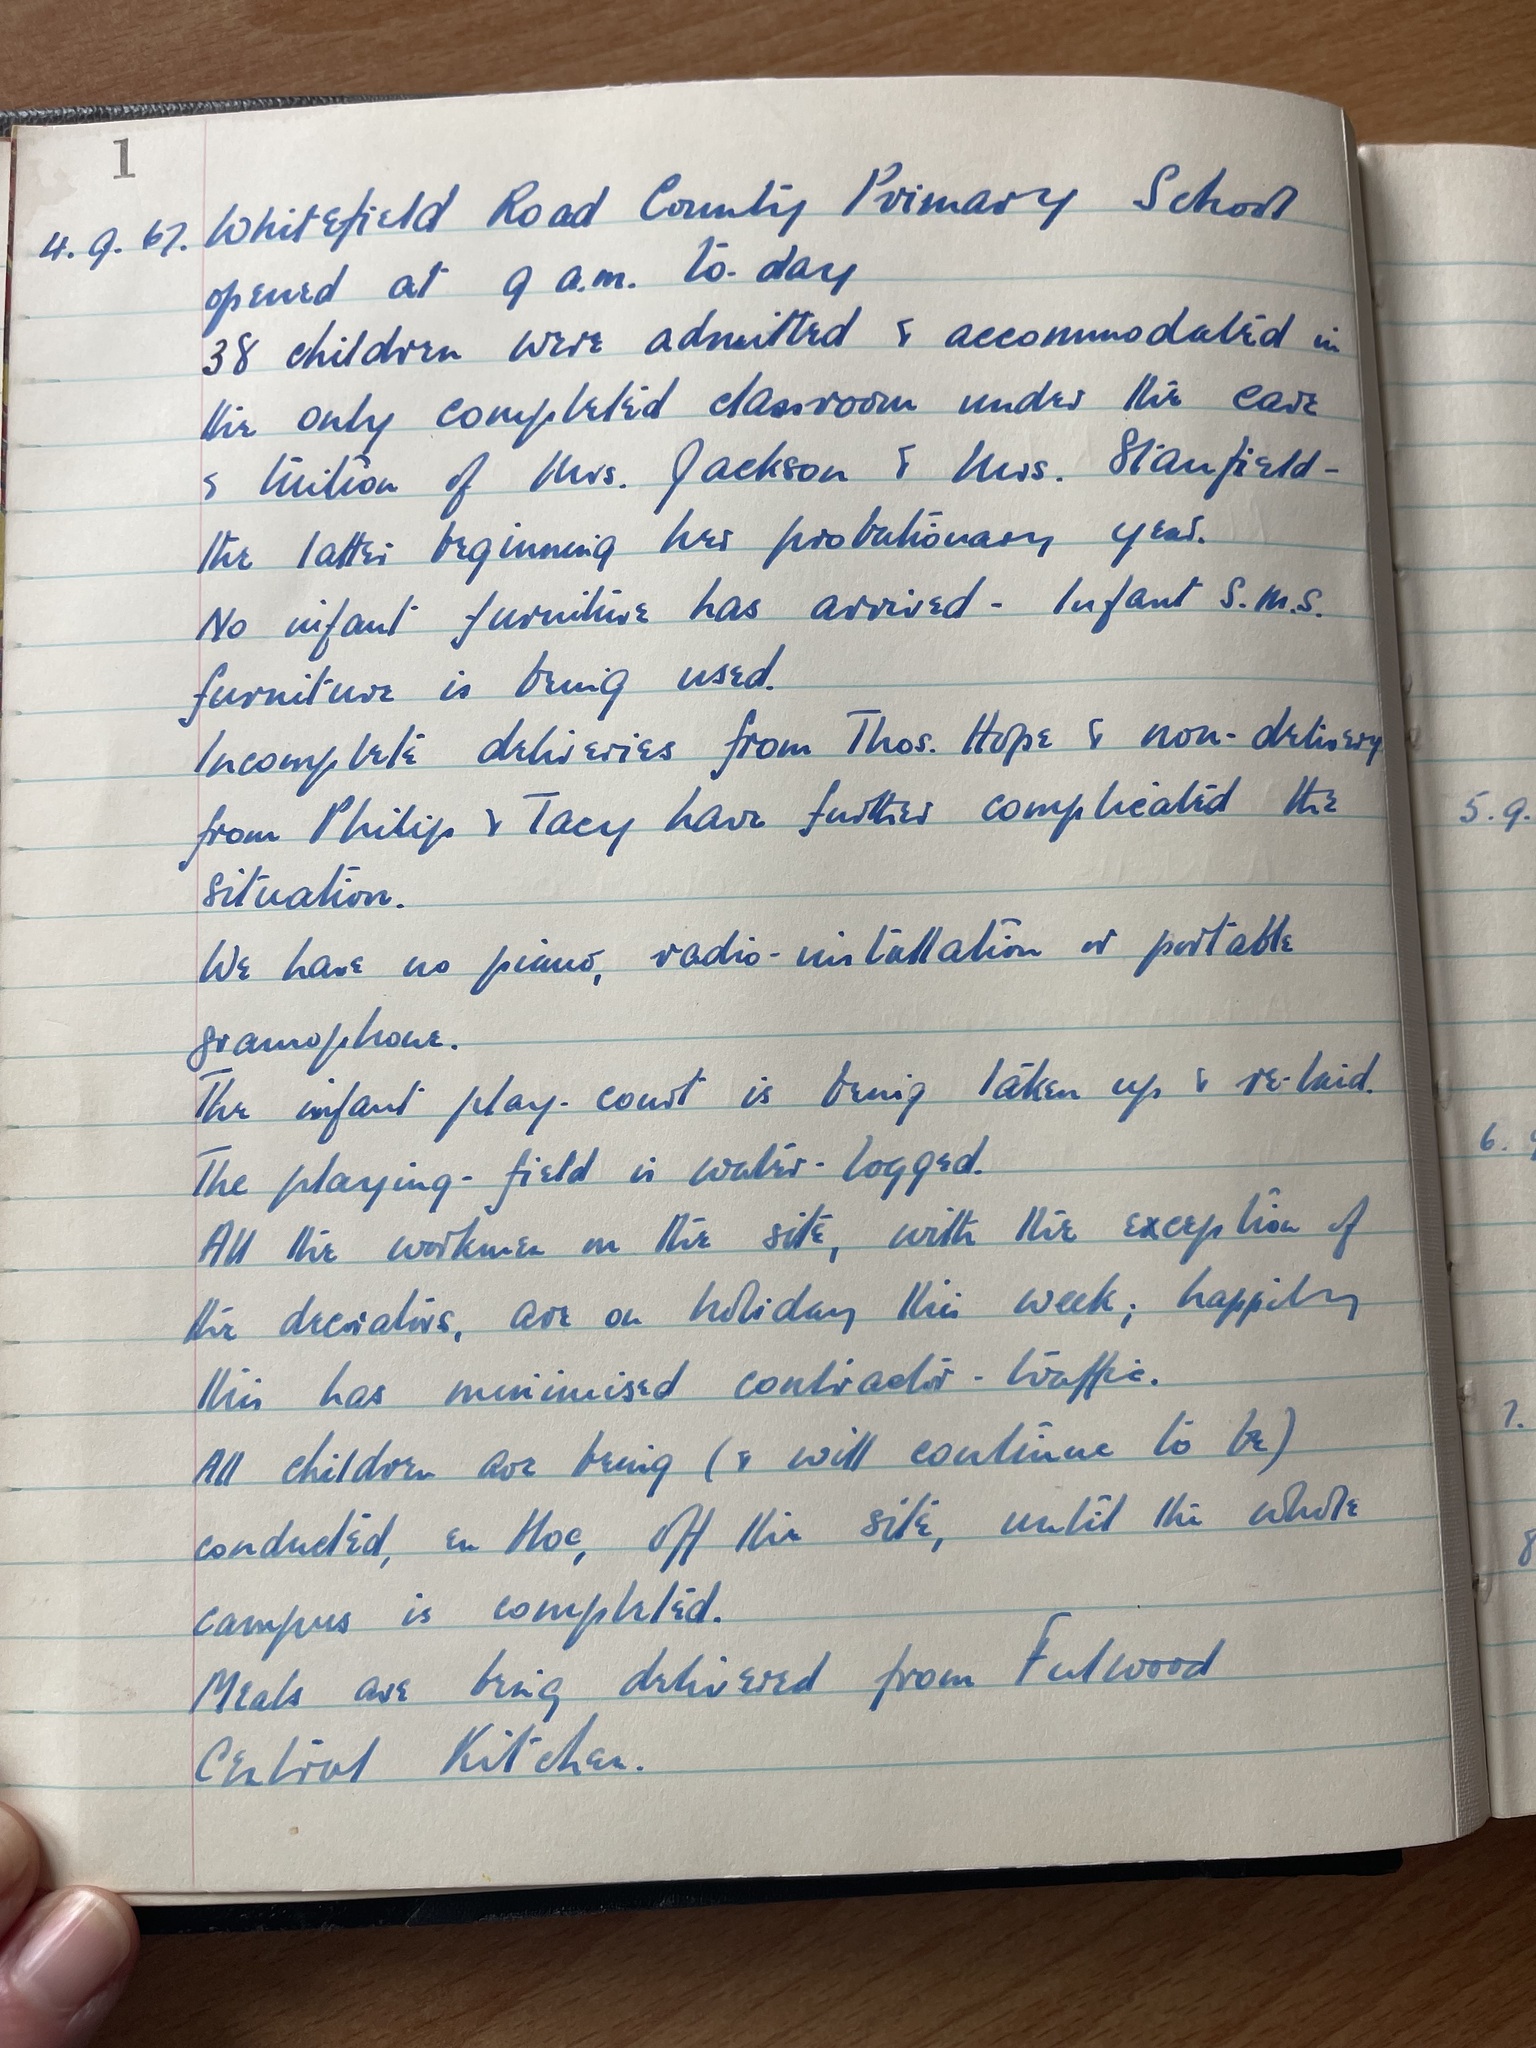 1
4.9.67. Whitefield Road County Primary School
opened at 9 a.m. to-day
38 children were admitted & accommodated in
the only completed classroom under the care
& tuition of Mrs. Jackson & Mrs. Stanfield -
the latter beginning her probationary year.
No infant furniture has arrived - Infant S.M.S.
furniture is being used.
Incomplete deliveries from Thos. Hope & non-delivery
from Philip & Tacy have further complicated the
situation.
We have no piano, radio-installation or portable
gramophone.
The infant play-court is being taken up & re-laid.
The playing-field is water-logged.
All the workmen on the site, with the exception of
the decorators, are on holiday this week; happily
this has minimised contractor-traffic.
All children are being (& will continue to be)
conducted, en bloc, off the site, until the whole
campus is completed.
Meals are being delivered from Fulwood
Central Kitchen.
5.9.
6.
7.
8